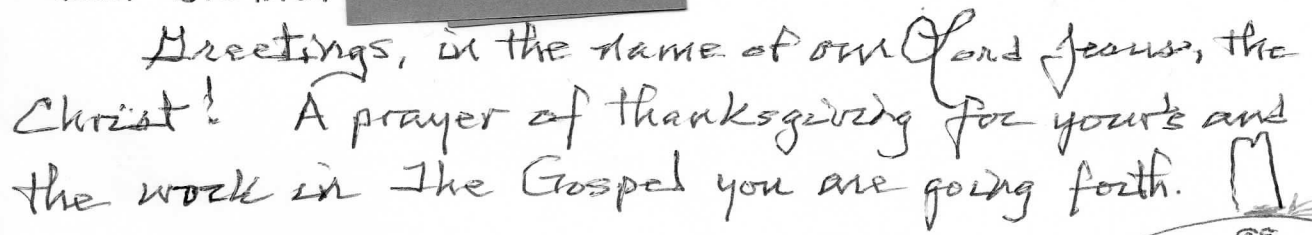 Greetings, in the name of our Lord Jesus, the
Christ! A prayer of thanksgiving for your's and
the work in The Gospel you are going forth.